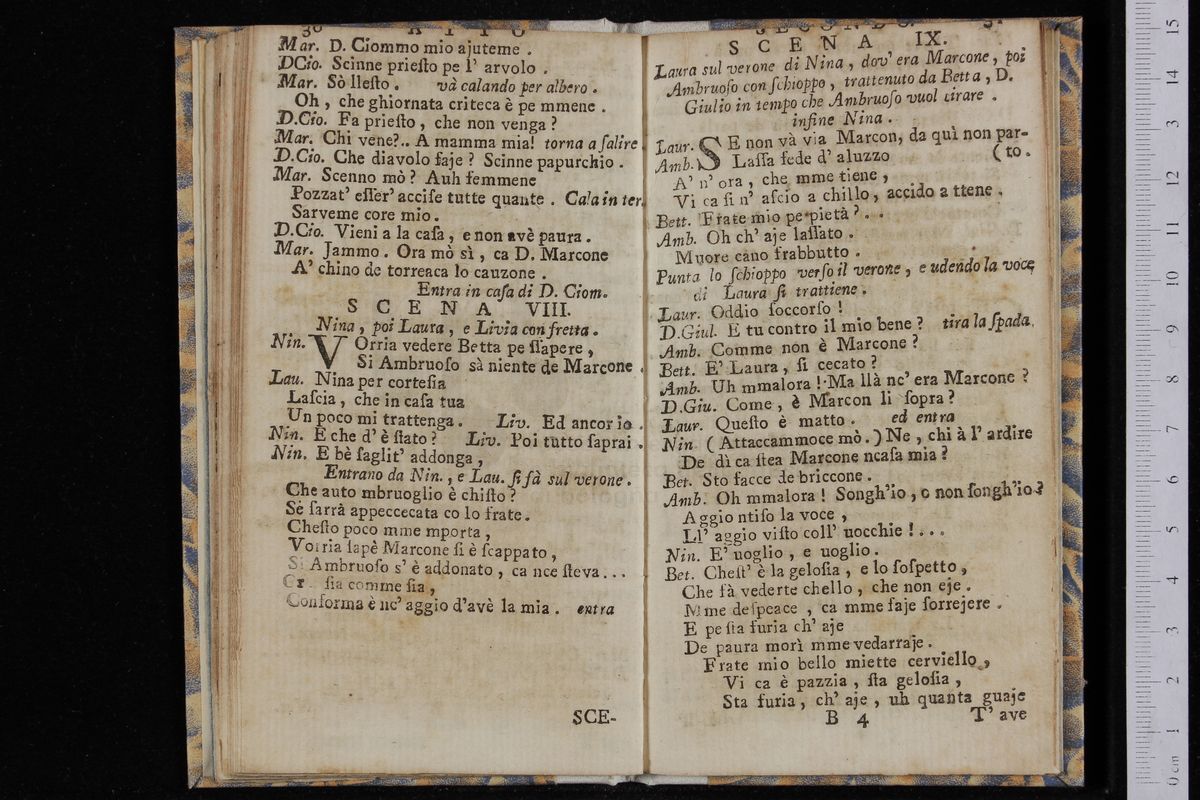 30 ATTO
Mar. D. Ciommo mio ajuteme.
DCio. Scinne prieſto pe l' arvolo.
Mar. Sò lleſto. và calando per albero.
Oh, che ghiornata criteca è pe mmene.
D.Cio. Fa prieſto, che non venga?
Mar. Chi vene?.. A mamma mia! torna a ſalire.
D.Cio. Che diavolo faje? Scinne papurchio.
Mar. Scenno mò? Auh femmene
Pozzat' eſſer' acciſe tutte quante. Cala in ter.
Sarveme core mio.
D.Cio. Vieni a la caſa, e non avè paura.
Mar. Jammo. Ora mò sì, ca D. Marcone
A' chino de torreaca lo cauzone.
Entra in caſa di D. Ciom.
SCENA VIII.
Nina, poi Laura, e Livia con fretta.
Nin. VOrria vedere Betta pe ſſapere,
Si Ambruoſo sà niente de Marcone.
Lau. Nina per corteſia
Laſcia, che in caſa tua
Un poco mi trattenga. Liv. Ed ancor io.
Nin. E che d' è ſtato? Liv. Poi tutto ſaprai.
Nin. E bè ſaglit' addonga,
Entrano da Nin., e Lau. ſi fà sul verone.
Che auto mbruoglio è chiſto?
Sè ſarrà appeccecata co lo frate.
Cheſto poco mme mporta,
Vorria ſapè Marcone ſi è ſcappato,
Si Ambruoſo s' è addonato, ca nce ſteva...
ſia comme ſia,
Conforma è nc' aggio d'avè la mia. entra
SCE-
SECONDO.
SCENA IX.
Laura sul verone di Nina, dov' era Marcone, poi
Ambruoſo con ſchioppo, trattenuto da Betta, D.
Giulio in tempo che Ambruoſo vuol tirare.
infine Nina.
Laur. SE non và via Marcon, da quì non par-
Amb. Laſſa fede d' aluzzo (to.
A' n' ora, che mme tiene,
Vi ca ſi n' aſcio a chillo, accido a ttene.
Bett. Frate mio pe pietà?..
Amb. Oh ch' aje laſſato.
Muore cano frabbutto.
Punta lo ſchioppo verſo il verone, e udendo la voce
di Laura ſi trattiene.
Laur. Oddio ſoccorſo!
D.Giul. E tu contro il mio bene? tira la ſpada.
Amb. Comme non è Marcone?
Bett. E' Laura, ſi cecato?
Amb. Uh mmalora! Ma llà nc' era Marcone?
D.Giu. Come, è Marcon lì ſopra?
Laur. Queſto è matto. ed entra
Nin (Attaccammoce mò.) Ne, chi à l' ardire
De dì ca ſtea Marcone ncaſa mia?
Bet. Sto facce de briccone.
Amb. Oh mmalora! Songh'io, o non ſongh'io?
Aggio ntiſo la voce,
Ll' aggio viſto coll' uocchie!...
Nin. E' uoglio, e uoglio.
Bet. Cheſt' è la geloſia, e lo ſoſpetto,
Che fà vederte chello, che non eje.
Mme deſpeace, ca mme faje ſorrejere.
E pe ſta furia ch' aje
De paura morì mme vedarraje.
Frate mio bello miette cerviello,
Vi ca è pazzia, ſta geloſia,
Sta furia, ch' aje, uh quanta guaje
B 4 T' ave
15
14
13
12
11
10
9
8
7
6
5
4
3
2
1
0 cm